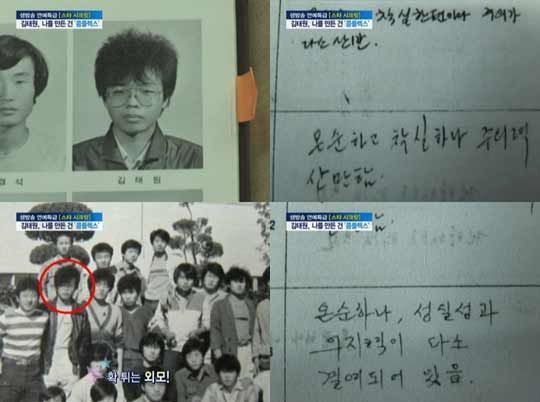 생방송 연예특급 [스타 시크릿]
김태원, 나를 만든 건 '콤플렉스'
경석
김태원
생방송 연예특급 [스타 시크릿]
김태원, 나를 만든 건 '콤플렉스'
착실한 편이나 주의가
다소 산만.
온순하고 착실하나 주의력
산만함.
생방송 연예특급 [스타 시크릿]
김태원, 나를 만든 건 '콤플렉스'
확 튀는 외모!
생방송 연예특급 [스타 시크릿]
김태원, 나를 만든 건 '콤플렉스'
2
온순하나, 성실성과
의지력이 다소
결여되어 있음.
3